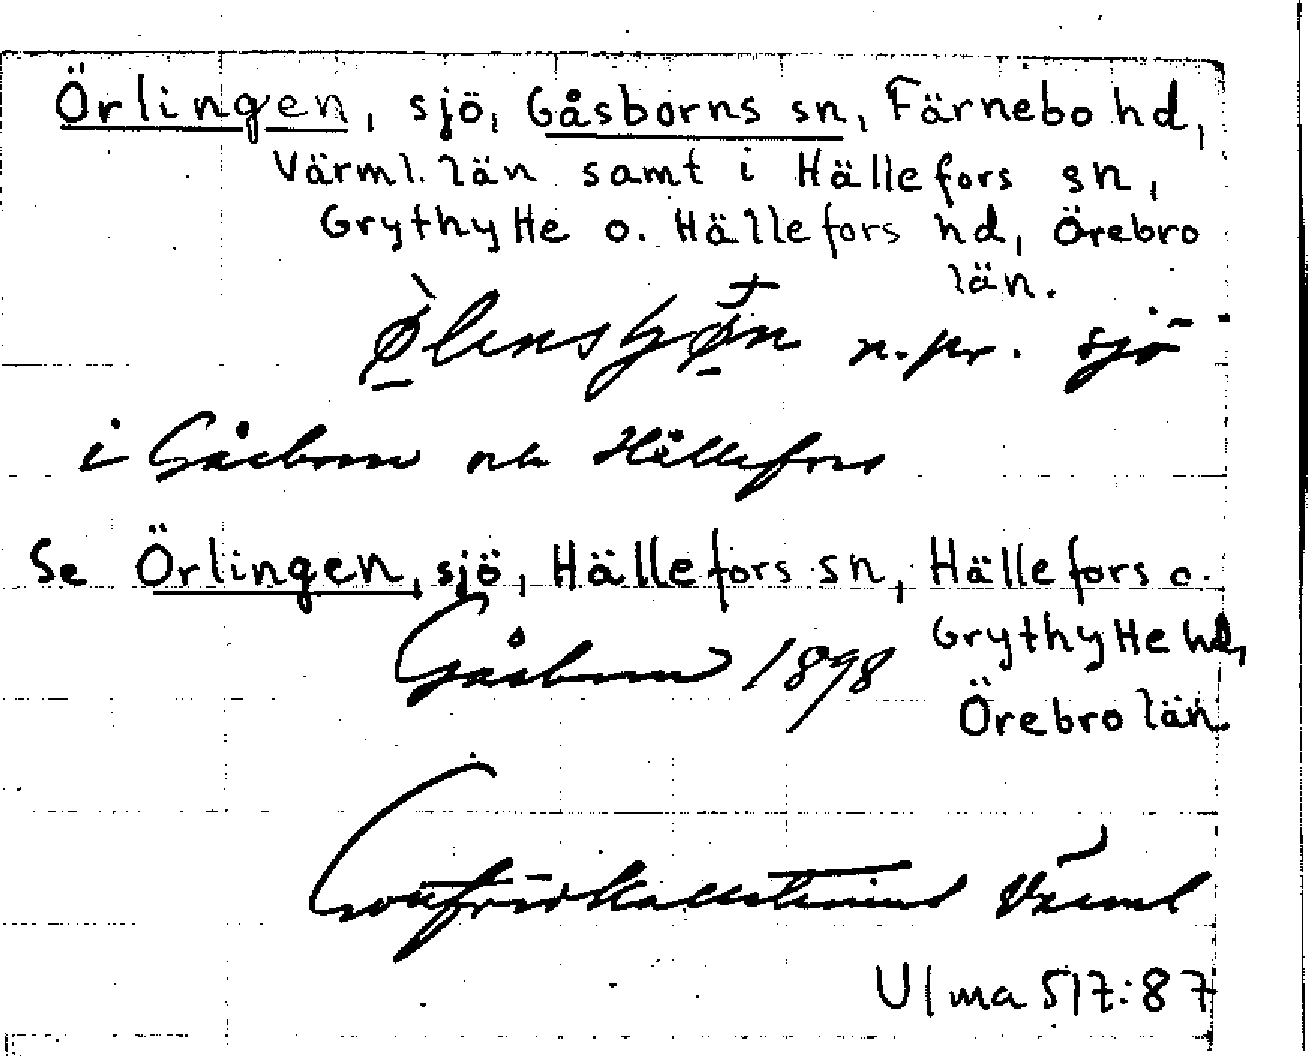 Örlingen, sjö, Gåsborns sn, Färnebo hd,
Värml. län samt i Hällefors sn,
Grythytte o. Hällefors hd, Örebro
län.
n.pr. sjö
i Gåsborn och Hällefors
Se Örlingen, sjö, Hällefors sn, Hällefors o.
Grythytte hd,
Gåsborn 1898
Örebro län.
Gottfrid Kallstenius Värml
Ulma 517:87